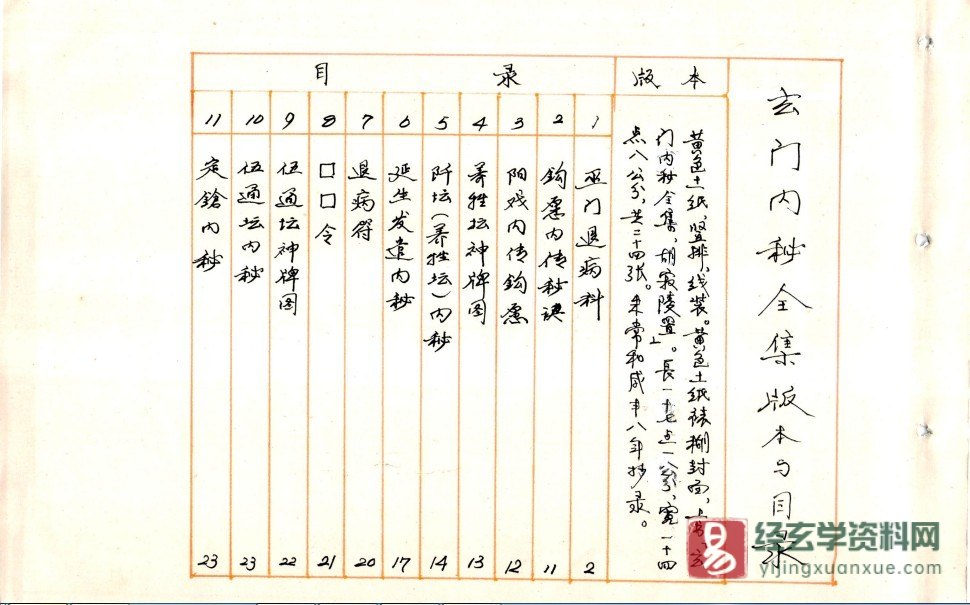 玄门内秘全集版本与目录
版本
黄色土纸，竖排，线装。黄色土纸裱糊封面，上书“玄
门内秘全集，胡寂陵置”。長一十七点一公分，宽一十四
点八公分，共二十四张。朱常和咸丰八年抄录。
目录
1 巫门退病科 2
2 钩愿内传秘诀 11
3 阳戏内传钩愿 12
4 养牲坛神牌图 13
5 阡坛（养牲坛）内秘 14
6 延生发遣内秘 17
7 退病符 20
8 □□令 21
9 伍通坛神牌图 22
10 伍通坛内秘 23
11 定鎗内秘 23
易
经玄学资料网
yijingxuanxue.com